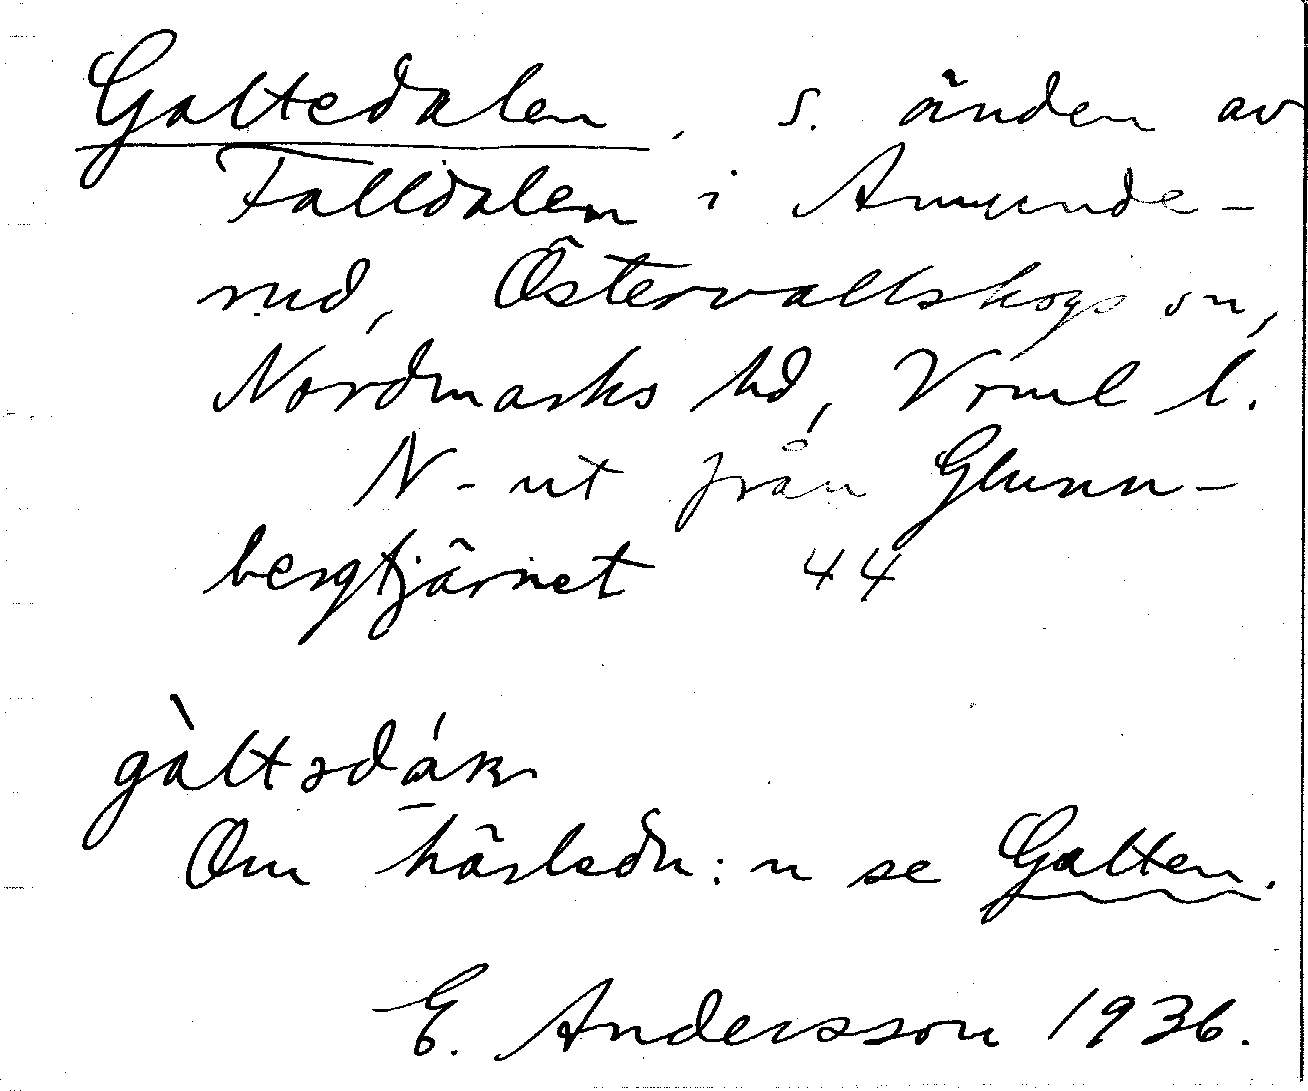 Galtedalen. s. änden av
Falldalen i Amunde-
rud, Östervallskogs sn,
Nordmarks hd, Vrml l.
N-ut från Glunn-
bergtjärnet 44
gàltədák
Om härledn:n se Galten.
E. Andersson 1936.